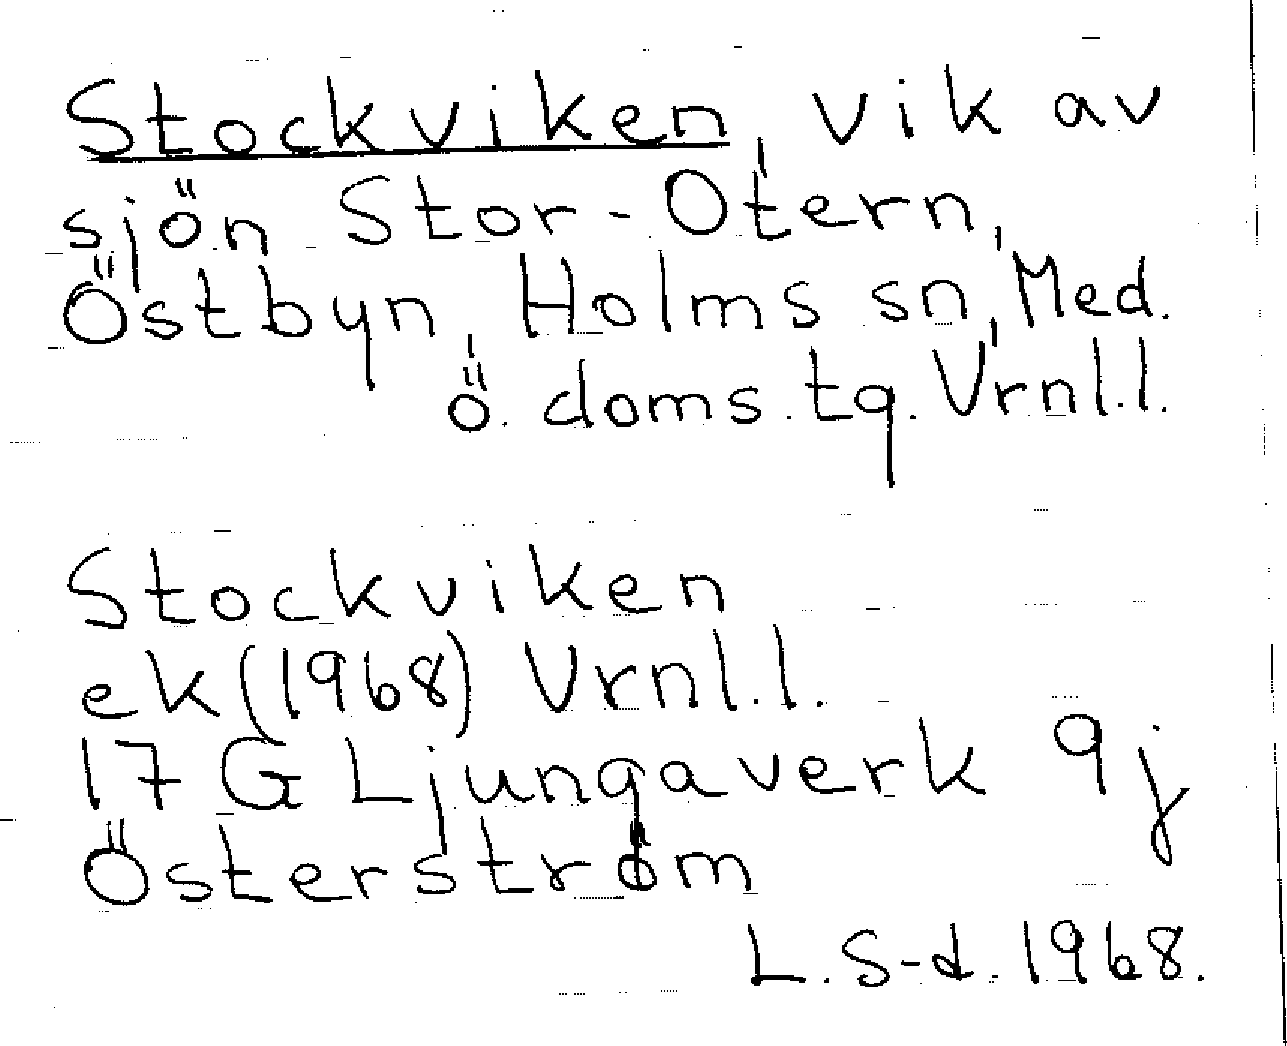 Stockviken, vik av
sjön Stor-Otern,
Östbyn, Holms sn, Med.
ö. doms. tg. Vrnl.l.
Stockviken
ek (1968) Vrnl.l.
17 G Ljungaverk 9j
Österström
L. S-d. 1968.